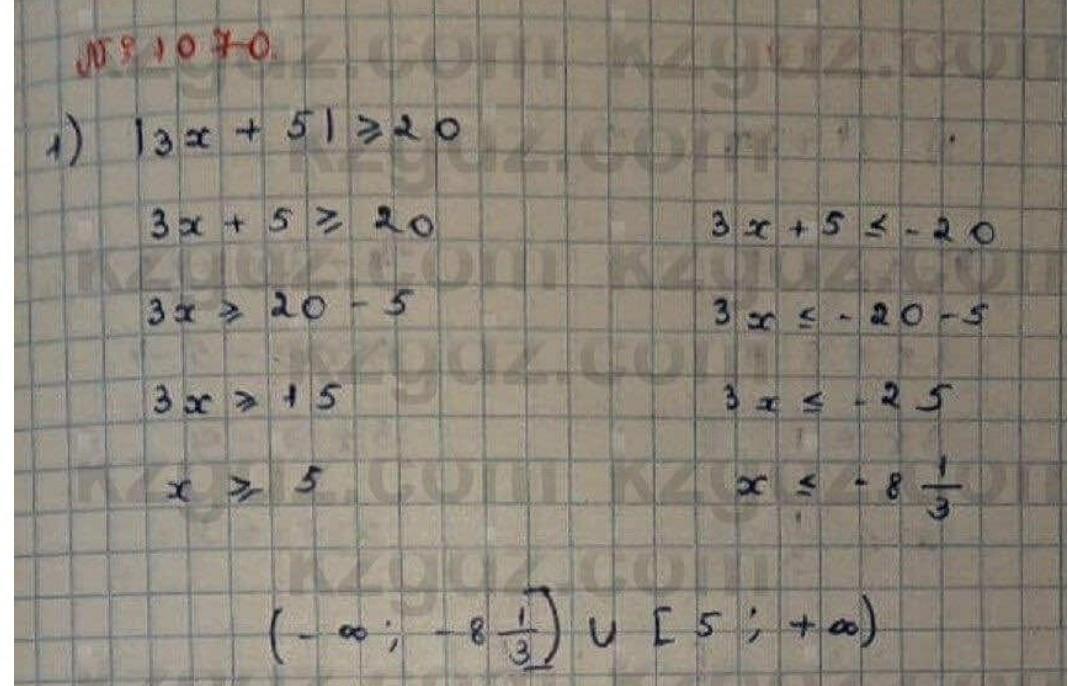 № 1070.
1) |3x + 5| ⩾ 20
3x + 5 ⩾ 20 3x + 5 ⩽ -20
3x ⩾ 20 - 5 3x ⩽ -20 - 5
3x ⩾ 15 3x ⩽ -25
x ⩾ 5 x ⩽ -8 1/3
(-∞; -8 1/3] ∪ [5; +∞)
kzgdz.com kzgdz.com
kzgdz.com
kzgdz.com kzgdz.com
kzgdz.com
kzgdz.com kzgdz.com
kzgdz.com